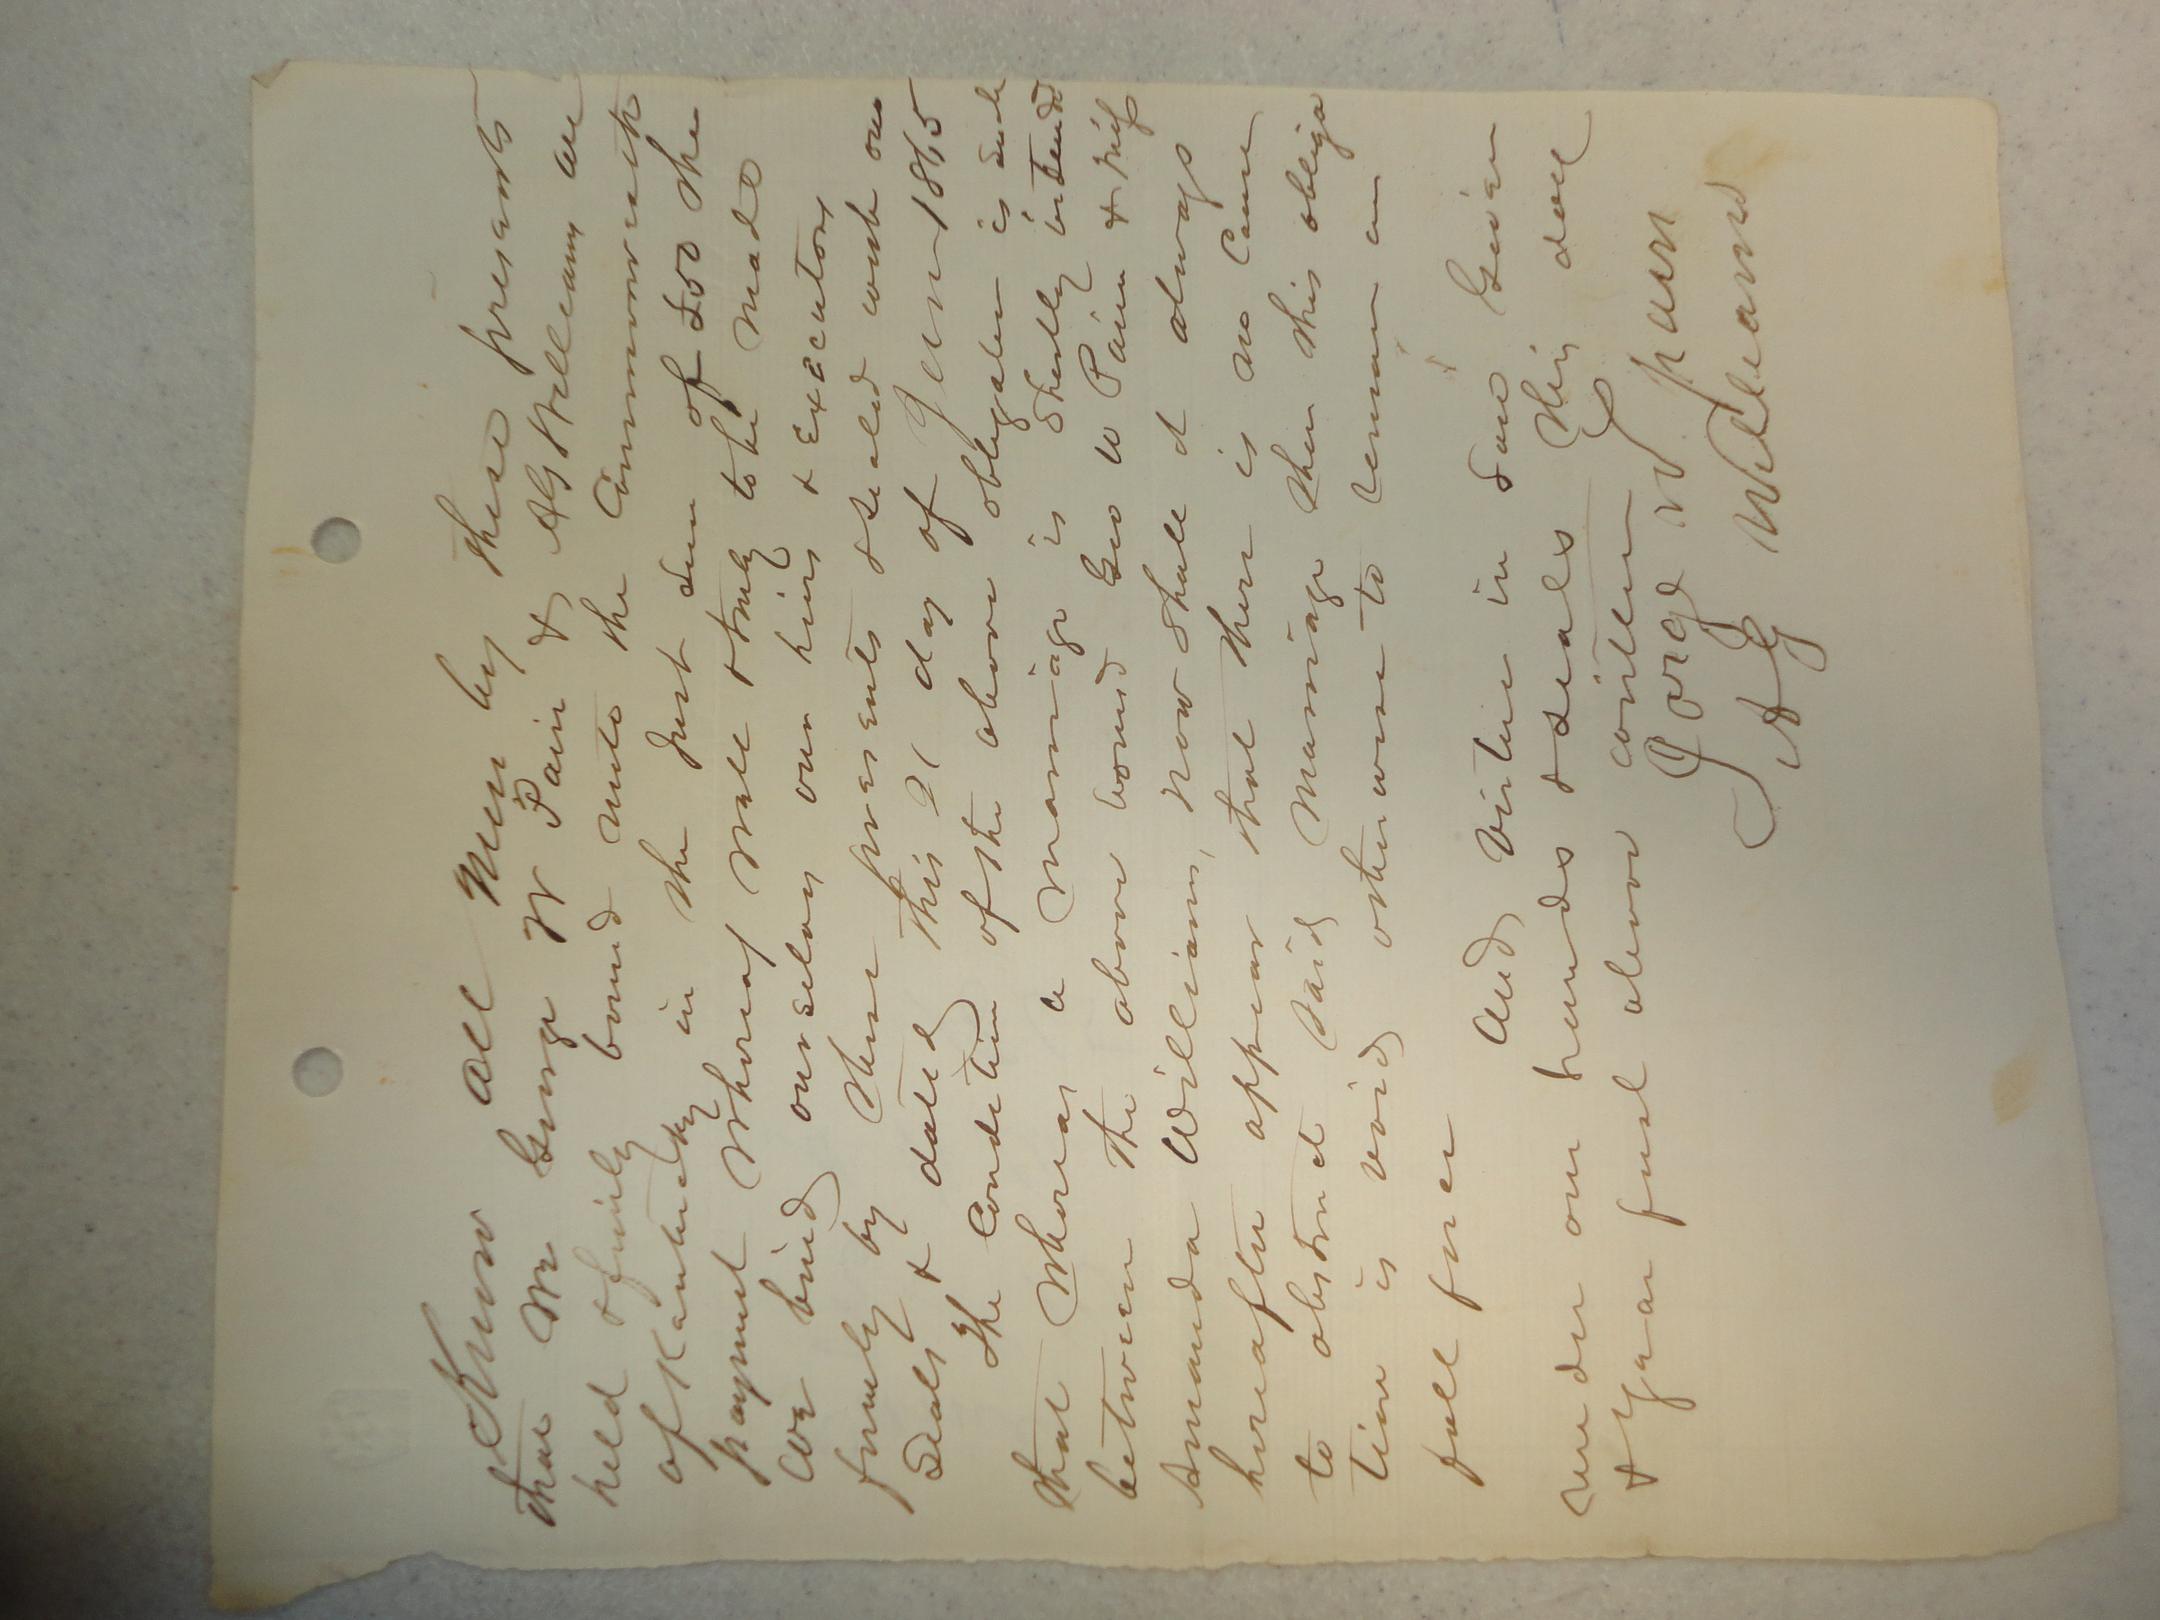 Know all Men by these presants
that We George W Pain & AG Williams are
held & firmly bound unto the Commonwealth
of Kantucky in the Just Sum of £00 the
payment Whereof well & truly to be made
We bind ourselvs our hiers & Executors
firmly by these presents & sealed with our
Seals & dated This 21 day of Jeny 1865
The Condition of the above obligation is such
that Whereas a Marriage is Shortly intended
between the above bound Geo W Pain &
Amanda Williams, Now Shall it always
hereafter appear that there is no Cause
to obstruct Said Marriage then this obliga
tion is void otherwise to remain in
full force
And Virtue in Law Given
under our hands & seals This day
& Year first above written
Gorge W pain
AG Williams